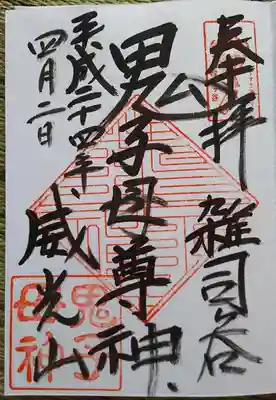 奉拝 雑司ヶ谷
鬼子母尊神
威光山
平成二十四年
四月二日
鬼子母神